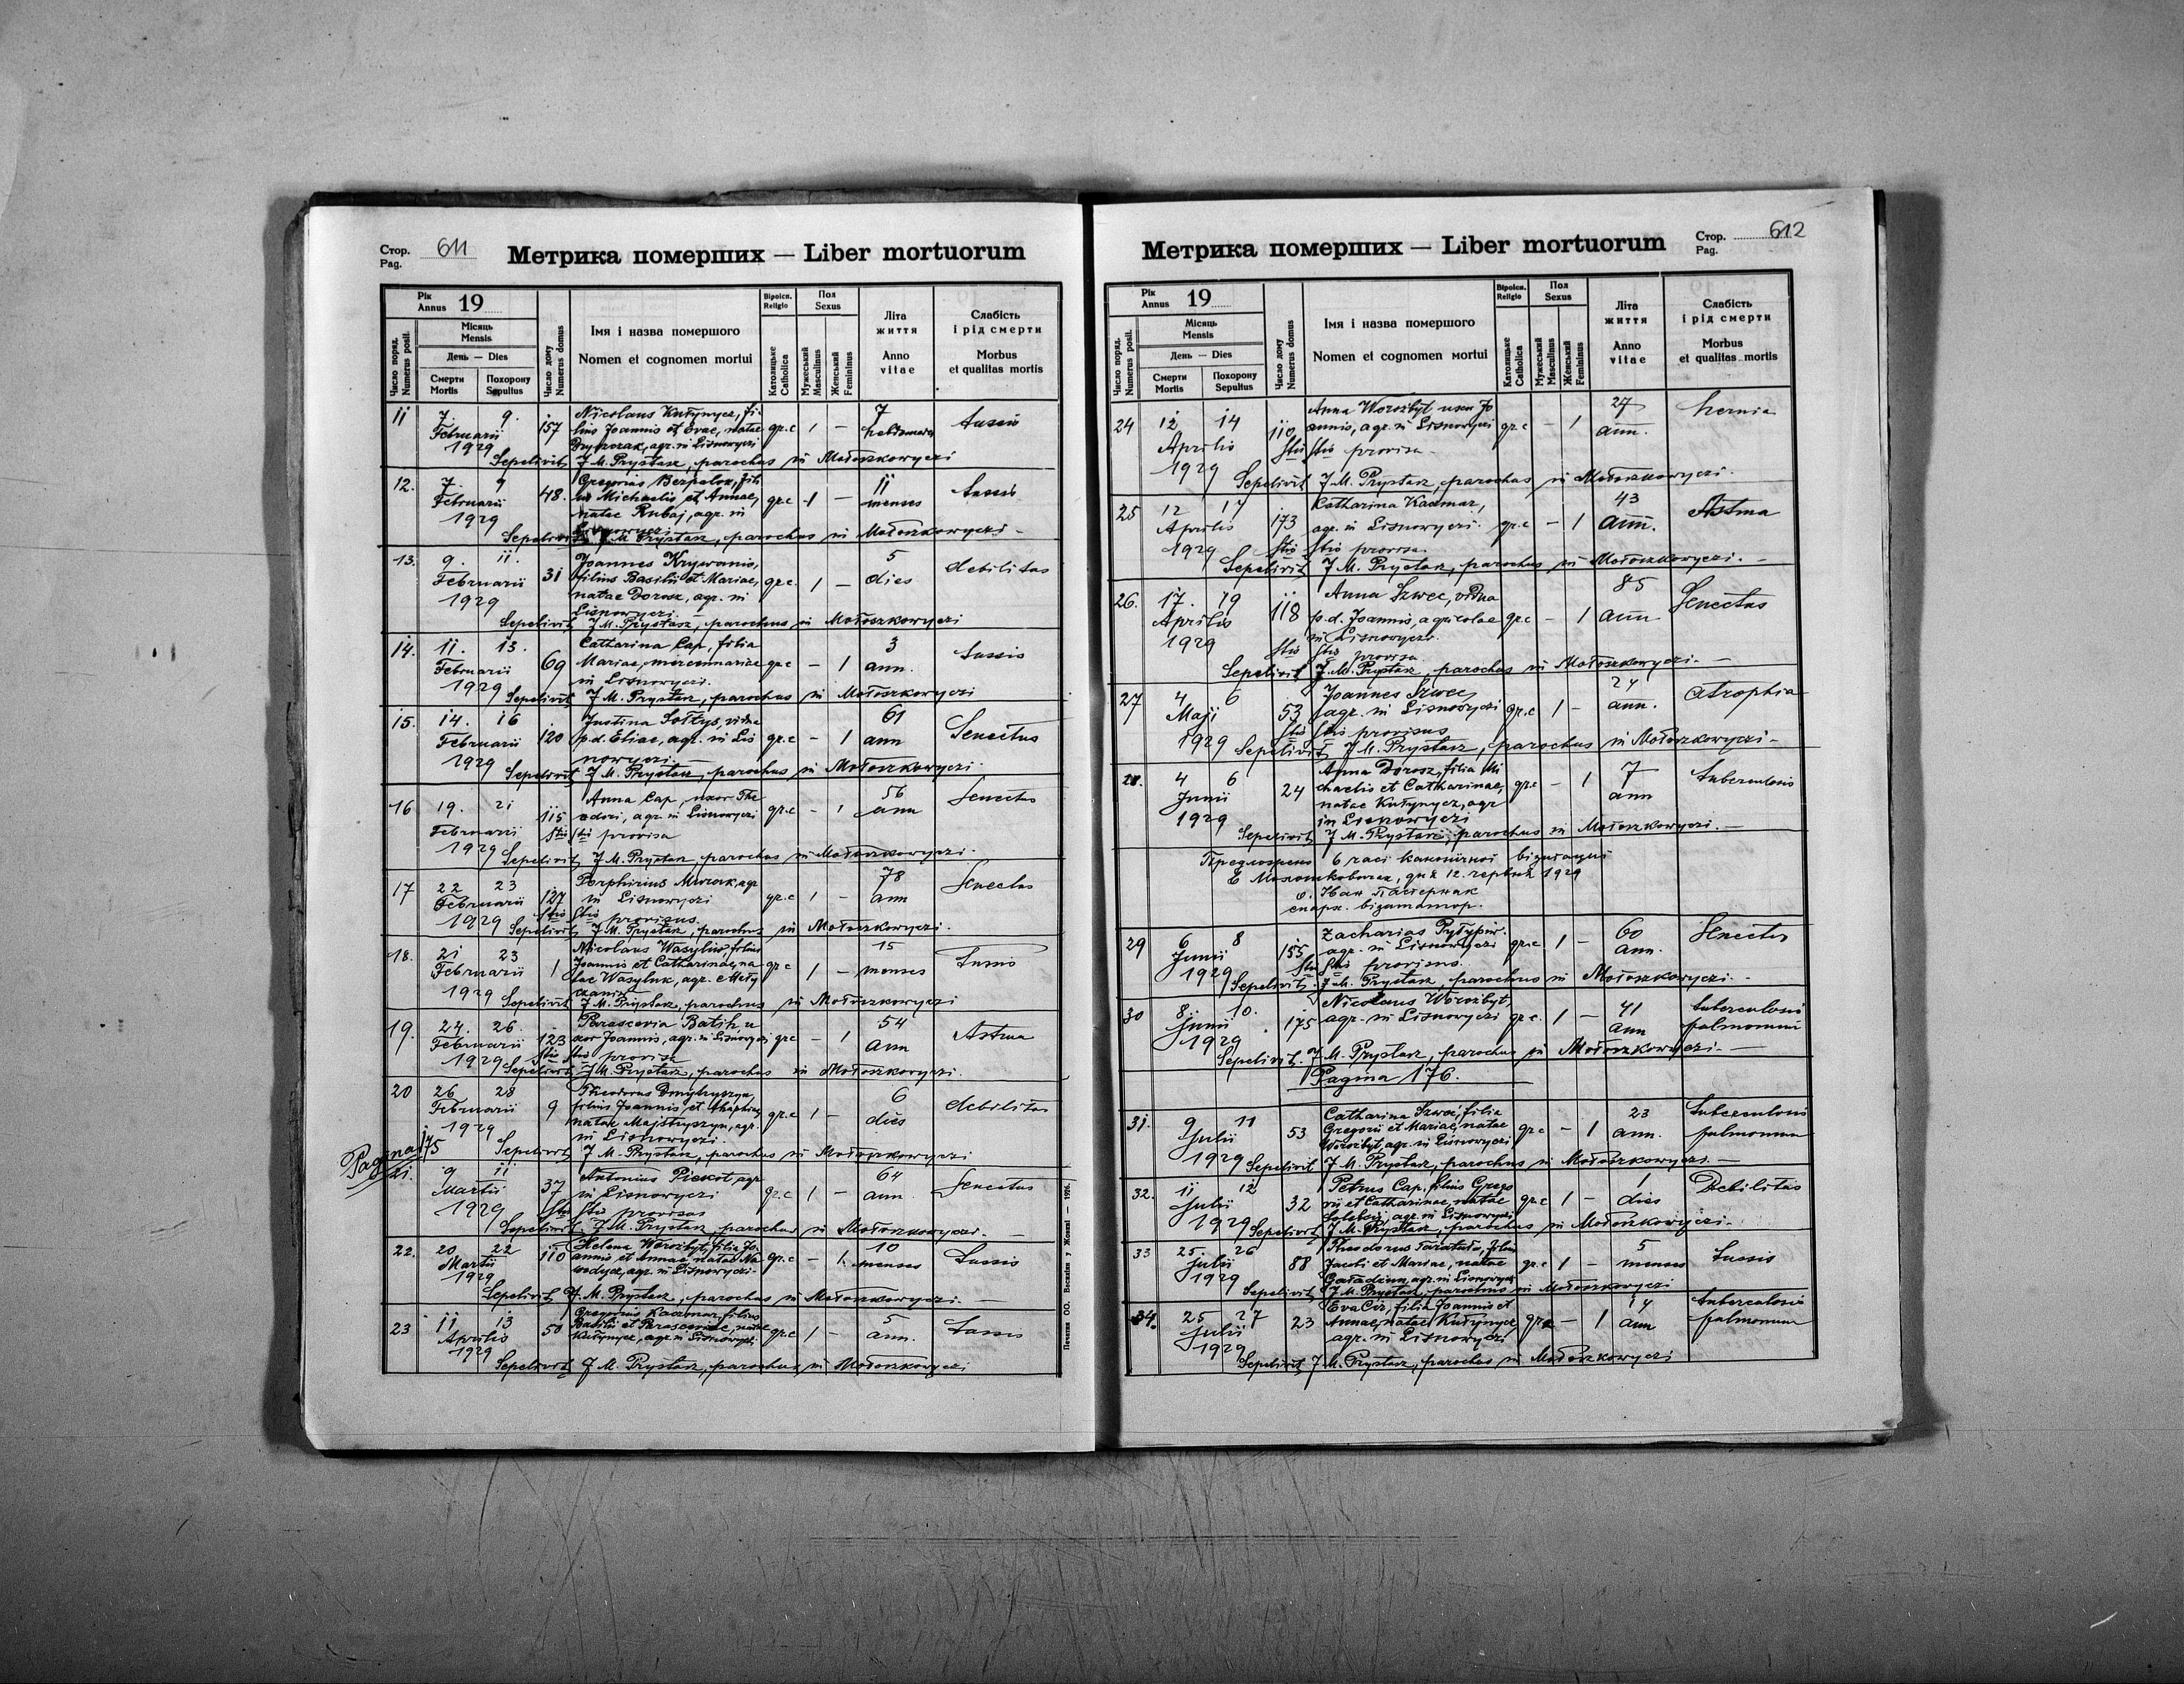 Стор.
Pag. 611
Метрика померших — Liber mortuorum
Число поряд.
Numerus posit.
Рік
Annus 19
Місяць
Mensis
День — Dies
Смерти
Mortis
Похорону
Sepultus
Число дому
Numerus domus
Імя і назва помершого
Nomen et cognomen mortui
Віроісп.
Religio
Католицьке
Catholica
Пол
Sexus
Мужеський
Masculinus
Женський
Femininus
Літа
життя
Anno
vitae
Слабість
і рід смерти
Morbus
et qualitas mortis
11 7. 9. 157 Nicolaus Kułynycz, fi-
Februarii lius Joannis et Evae, natae gr.c 1 — 7 hebdomada tussis
1929 agr. in Lisnowyczi
Sepelivit J. M. Prystasz, parochus in Mołoszkowyczi
12. 7. 9 48. Gregorius Bezpalok, fili
Februarii us Michaelis et Annae, gr.c 1 — 11 menses tussis
1929 natae Rubaj, agr. in
Lisnowyczi
Sepelivit J. M. Prystasz, parochus in Mołoszkowyczi —
13. 9. 11. 31 Joannes Krywonis,
Februarii filius Basilii et Mariae, gr.c. 1 — 5 dies debilitas
1929 natae Dorosz, agr. in
Lisnowyczi.
Sepelivit J. M. Prystasz, parochus in Mołoszkowyczi
14. 11. 13. 69 Catharina Cap, filia
Februarii Mariae, mercennariae gr.c — 1 3 ann. tussis
1929 in Lisnowyczi.
Sepelivit J. M. Prystasz, parochus in Mołoszkowyczi
15. 14. 16 120 Justina Sołtys, vidua
Februarii p.d. Eliae, agr. in Lis gr.c — 1 61 ann Senectus
1929 nowyczi.
Sepelivit J. M. Prystasz, parochus in Mołoszkowyczi.
16 19. 21 115 Anna Cap, uxor The
Februarii odori, agr. in Lisnowyczi gr.c — 1 56 ann Senectus
Stis Stis provisa
1929 Sepelivit J. M. Prystasz, parochus in Mołoszkowyczi.
17 22 23 127 Porphirius Mrozek, agr
Februarii in Lisnowyczi gr.c 1 — 78 ann Senectus
Stis Stis provisus.
1929 Sepelivit J. M. Prystasz, parochus in Mołoszkowyczi.
18. 21 23 1 Nicolaus Wasyliw, filius
Februarii Joannis et Catharinae, na gr.c 1 — 15 menses Tussis
tae Wasyluk, agr.
1929 Sepelivit J. M. Prystasz, parochus in Mołoszkowyczi
19. 24. 26. 123 Parascevia Batih, u
Februarii xor Joannis, agr. in Lisnowyczi gr.c — 1 54 ann Astma
Stis Stis provisa
1929 Sepelivit J. M. Prystasz, parochus in Mołoszkowyczi.
20 26 28 9 Theodorus Dmytryszyn,
Februarii filius Joannis, et gr.c 1 — 6 dies debilitas
1929 natae Majstryszyn, agr.
in Lisnowyczi.
Sepelivit J. M. Prystasz, parochus in Mołoszkowyczi
Pagina 175
21. 9 11 37 Antonius Piekot, agr
Martii in Lisnowyczi gr.c 1 — 64 ann. Senectus
1929 Stis Stis provisus
Sepelivit J. M. Prystasz, parochus in Mołoszkowyczi. —
22. 20 22 110 Helena Worożbyt, filia Jo-
Martii annis et Annae, natae gr.c — 1. 10 menses Tussis
1929 agr. in Lisnowyczi.
Sepelivit J. M. Prystasz, parochus in Mołoszkowyczi. —
23 11 13 50 Gregorius Kaczmar, filius
Aprilis Basilii et Parasceviae, natae gr.c 1 — 5 ann. Tussis
1929 Kułynycz, agr. in Lisnowyczi
Sepelivit J. M. Prystasz, parochus in Mołoszkowyczi
Печатня ОО. Василіян у Жовкві — 1926.
Метрика померших — Liber mortuorum
Стор.
Pag. 612
Число поряд.
Numerus posit.
Рік
Annus 19
Місяць
Mensis
День — Dies
Смерти
Mortis
Похорону
Sepultus
Число дому
Numerus domus
Імя і назва помершого
Nomen et cognomen mortui
Віроісп.
Religio
Католицьке
Catholica
Пол
Sexus
Мужеський
Masculinus
Женський
Femininus
Літа
життя
Anno
vitae
Слабість
і рід смерти
Morbus
et qualitas mortis
24 12 14 110 Anna Worożbyt uxor Jo
Aprilis annis, agr. in Lisnowyczi gr.c — 1 27 ann. hernia
Stis Stis provisa.
1929 Sepelivit J. M. Prystasz, parochus in Mołoszkowyczi.
25 12 14 173 Catharina Kaczmar,
Aprilis agr. in Lisnowyczi. gr.c — 1 43 ann. Astma
1929 Stis Stis provisa.
Sepelivit J. M. Prystasz, parochus in Mołoszkowyczi. —
26. 17. 19 118 Anna Szwec, vidua
Aprilis p.d. Joannis, agricolae gr.c — 1 85 ann Senectus
1929 in Lisnowyczi.
Stis Stis provisa
Sepelivit J. M. Prystasz, parochus in Mołoszkowyczi. —
27 4 6 53 Joannes Szwec,
Maji agr. in Lisnowyczi gr.c 1 — 24 ann. Atrophia
Stis Stis provisus
1929 Sepelivit J. M. Prystasz, parochus in Mołoszkowyczi —
28. 4 6 24 Anna Dorosz, filia Mi
Junii chaelis et Catharinae, gr.c — 1 7 ann tuberculosis
1929 natae Kułynycz, agr
in Lisnowyczi
Sepelivit J. M. Prystasz, parochus in Mołoszkowyczi. —
Предложено в часі канонічної візитації
В Молошковичах, дня 12. червня 1929
о. Іван Пастернак
епарх. візитатор.
29 6 8 155 Zacharias Pyłypiw.
Junii agr. in Lisnowyczi gr.c. 1 — 60 ann. Senectus
Stis Stis provisus.
1929 Sepelivit J. M. Prystasz, parochus in Mołoszkowyczi. —
30 8. 10. 175 Nicolaus Worożbyt,
Junii agr. in Lisnowyczi gr.c. 1 — 41 ann tuberculosis
1929 pulmonum
Sepelivit. J. M. Prystasz, parochus in Mołoszkowyczi. —
Pagina 176.
31. 9 11 53 Catharina Szwec, filia
Julii Gregorii et Mariae, natae gr.c — 1 23 ann. tuberculosis
Worożbyt, agr. in Lisnowyczi pulmonum
1929 Sepelivit J. M. Prystasz, parochus in Mołoszkowyczi. —
32. 11 12 32 Petrus Cap, filius Grego
Julii rii et Catharinae, natae gr.c 1 — 1 dies Debilitas
agr. in Lisnowyczi
1929 Sepelivit J. M. Prystasz, parochus in Mołoszkowyczi.
33 25. 26 88 Theodorus Taratuła, filius
Julii Jacobi et Mariae, natae gr.c 1 — 5 menses Tussis
1929 agr. in Lisnowyczi
Sepelivit J. M. Prystasz, parochus in Mołoszkowyczi
34. 25 27 23 Eva Ciż, filia Joannis et
Julii Annae, natae Kułynycz, gr.c — 1 14 ann tuberculosis
1929 agr. in Lisnowyczi pulmonum
Sepelivit J. M. Prystasz, parochus in Mołoszkowyczi